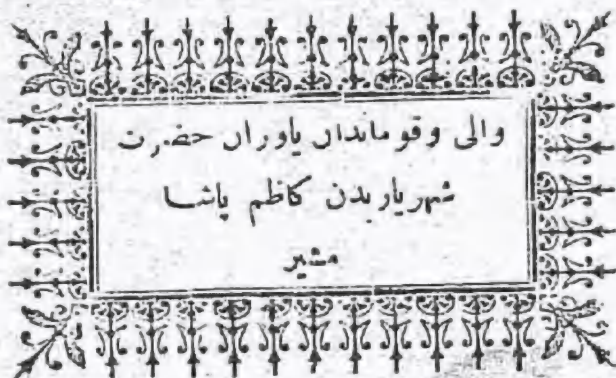 والی وقومانداں یاوراں حضرت
شهریاریدن كاظم پاشا
مشیر